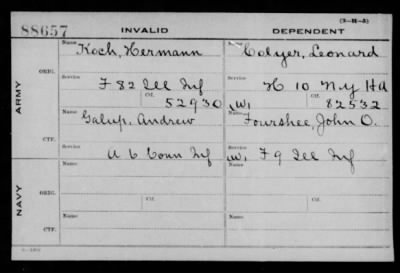 (3-M-3)
88657 INVALID DEPENDENT
Name Koch, Hermann Name Colyer, Leonard
ARMY
ORIG. Service F 82 Ill Inf Service H 10 N.Y. HA
Ctf. 52930 (W) Ctf. 82532
Name Galup, Andrew Name Fourshee, John O.
CTF. Service A 6 Conn Inf Service (W) F 9 Ill Inf
NAVY
Name Name
ORIG. Service Ctf. Service Ctf.
Name Name
CTF. Service Service